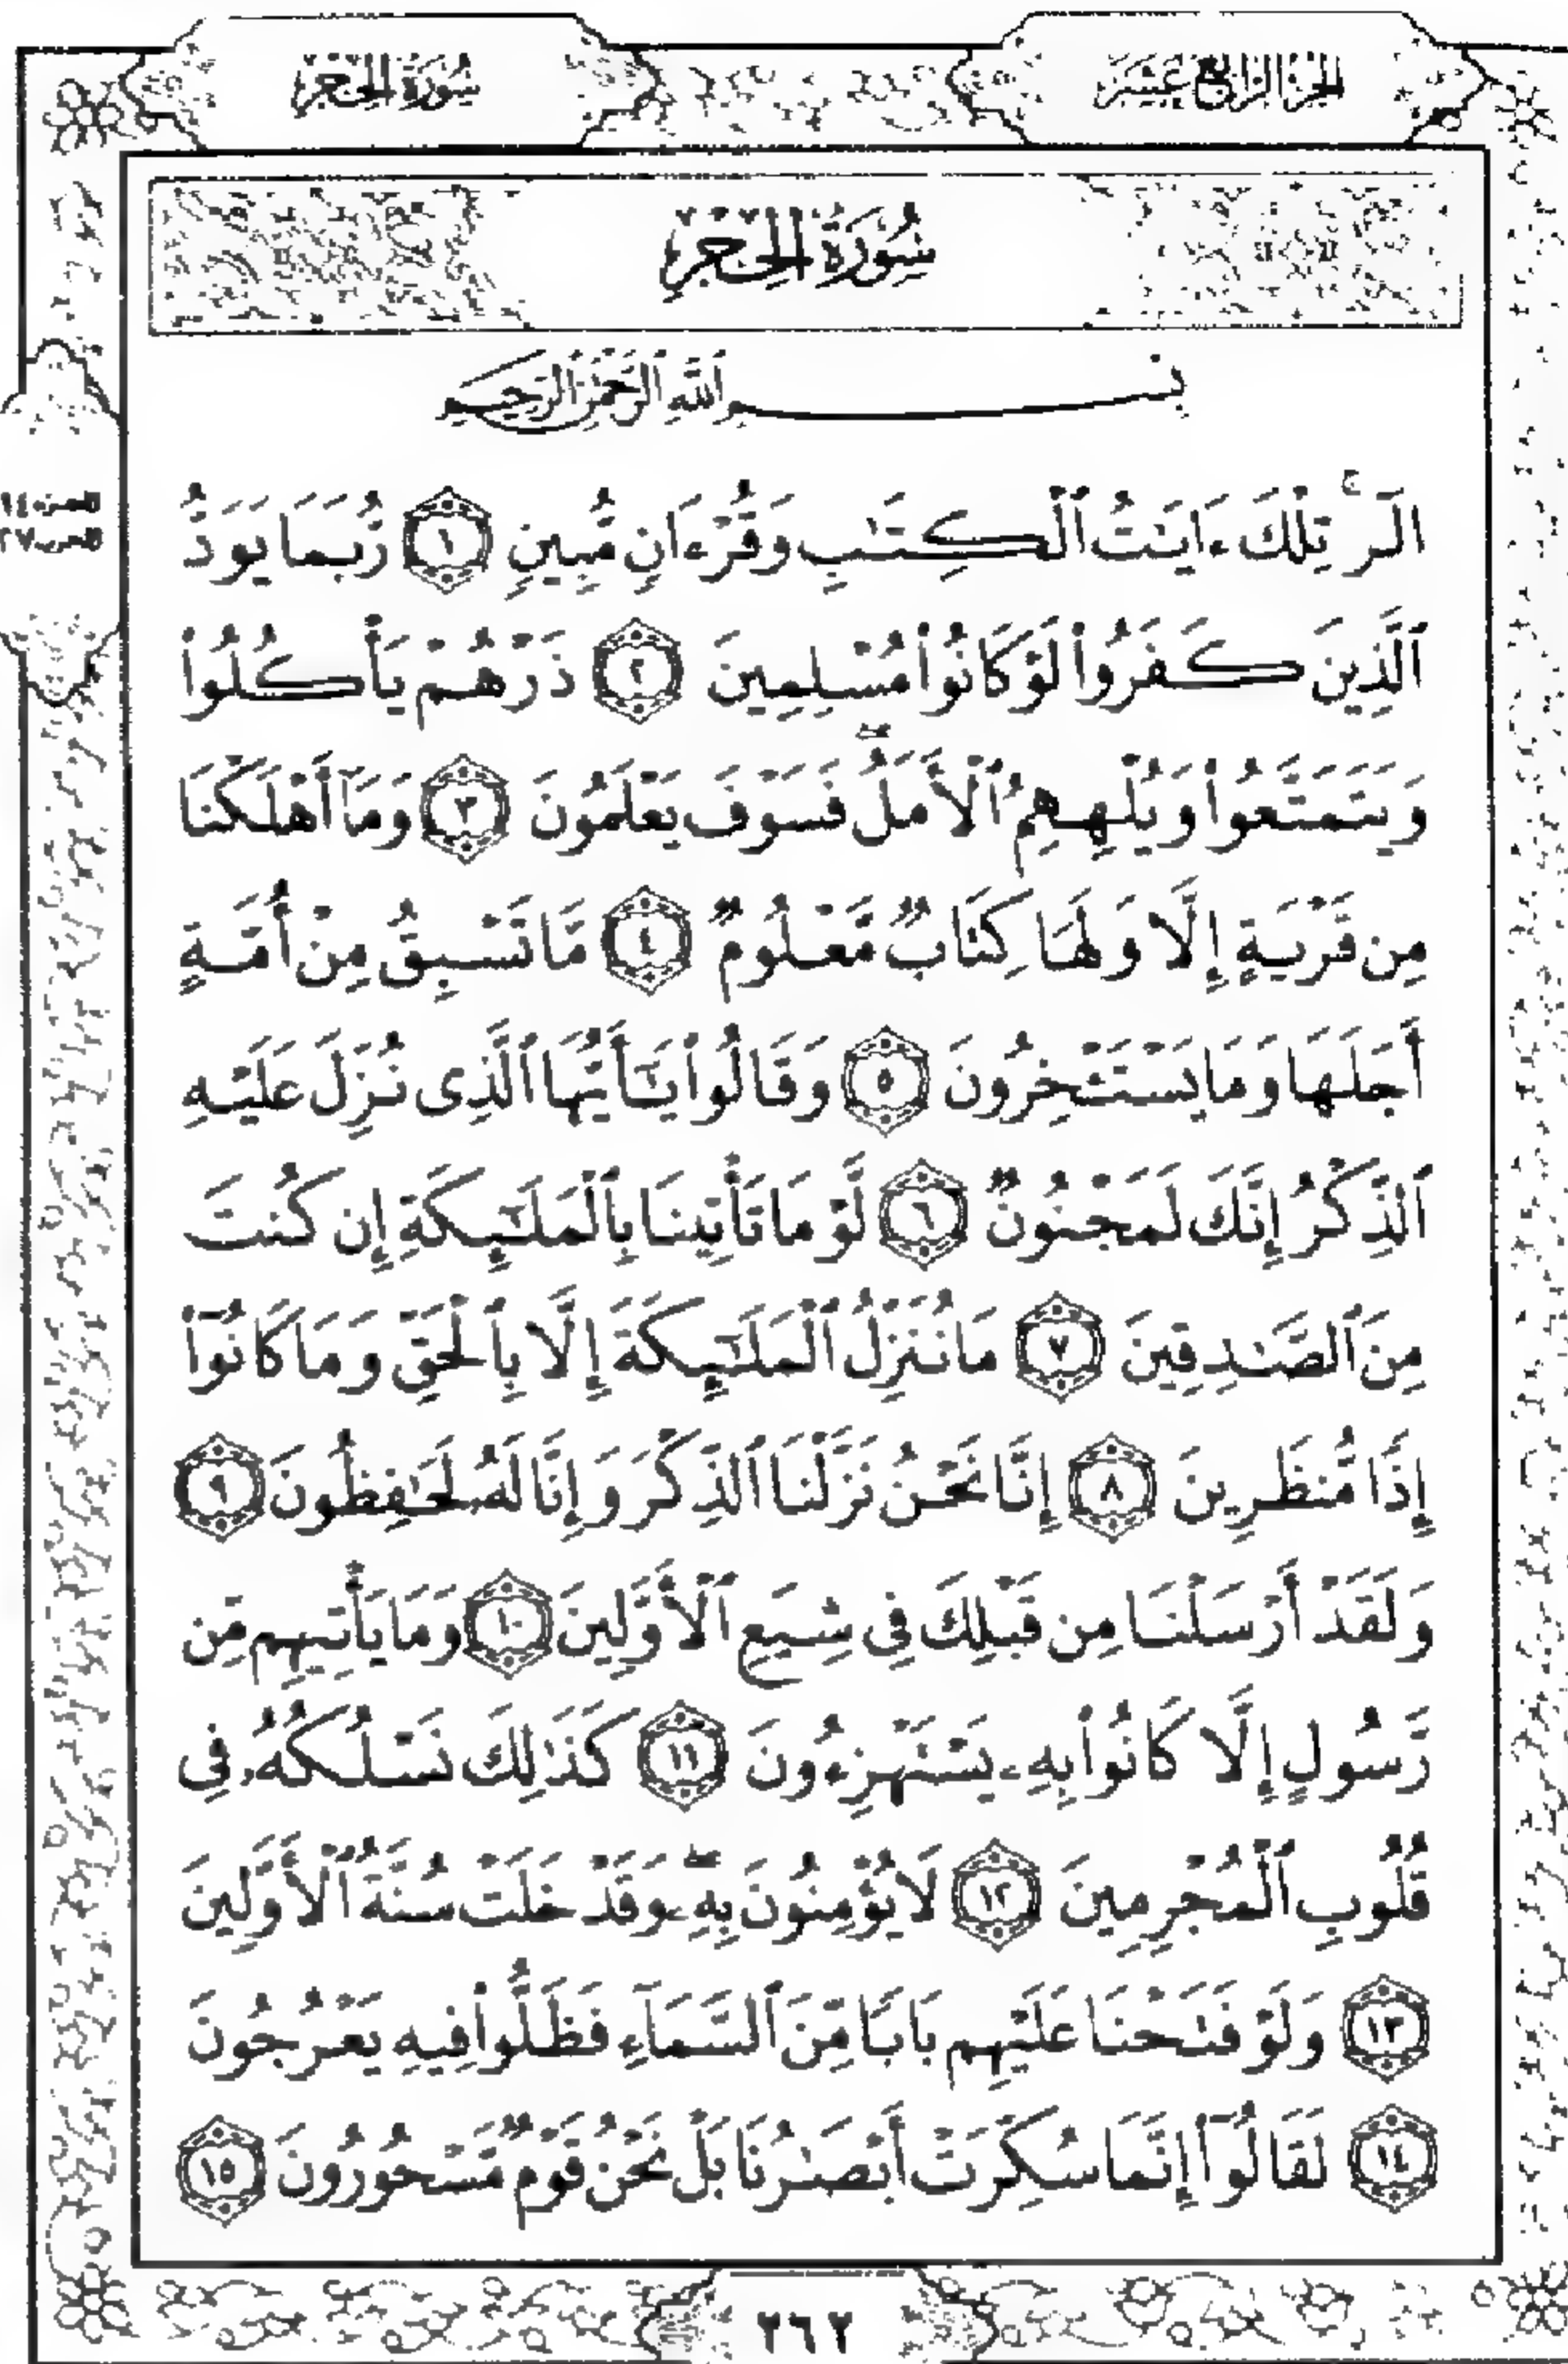 الجزء الرابع عشر
سورة الحجر
سُورَةُ الحِجْرِ
بِسْمِ ٱللَّهِ ٱلرَّحْمَٰنِ ٱلرَّحِيمِ
الٓرۚ تِلْكَ ءَايَٰتُ ٱلْكِتَٰبِ وَقُرْءَانٍ مُّبِينٍ ١ رُّبَمَا يَوَدُّ
ٱلَّذِينَ كَفَرُوا۟ لَوْ كَانُوا۟ مُسْلِمِينَ ٢ ذَرْهُمْ يَأْكُلُوا۟
وَيَتَمَتَّعُوا۟ وَيُلْهِهِمُ ٱلْأَمَلُۖ فَسَوْفَ يَعْلَمُونَ ٣ وَمَآ أَهْلَكْنَا
مِن قَرْيَةٍ إِلَّا وَلَهَا كِتَابٌ مَّعْلُومٌ ٤ مَّا تَسْبِقُ مِنْ أُمَّةٍ
أَجَلَهَا وَمَا يَسْتَـْٔخِرُونَ ٥ وَقَالُوا۟ يَٰٓأَيُّهَا ٱلَّذِى نُزِّلَ عَلَيْهِ
ٱلذِّكْرُ إِنَّكَ لَمَجْنُونٌ ٦ لَّوْ مَا تَأْتِينَا بِٱلْمَلَٰٓئِكَةِ إِن كُنتَ
مِنَ ٱلصَّٰدِقِينَ ٧ مَا نُنَزِّلُ ٱلْمَلَٰٓئِكَةَ إِلَّا بِٱلْحَقِّ وَمَا كَانُوٓا۟
إِذًا مُّنظَرِينَ ٨ إِنَّا نَحْنُ نَزَّلْنَا ٱلذِّكْرَ وَإِنَّا لَهُۥ لَحَٰفِظُونَ ٩
وَلَقَدْ أَرْسَلْنَا مِن قَبْلِكَ فِى شِيَعِ ٱلْأَوَّلِينَ ١٠ وَمَا يَأْتِيهِم مِّن
رَّسُولٍ إِلَّا كَانُوا۟ بِهِۦ يَسْتَهْزِءُونَ ١١ كَذَٰلِكَ نَسْلُكُهُۥ فِى
قُلُوبِ ٱلْمُجْرِمِينَ ١٢ لَا يُؤْمِنُونَ بِهِۦۖ وَقَدْ خَلَتْ سُنَّةُ ٱلْأَوَّلِينَ
١٣ وَلَوْ فَتَحْنَا عَلَيْهِم بَابًا مِّنَ ٱلسَّمَآءِ فَظَلُّوا۟ فِيهِ يَعْرُجُونَ
١٤ لَقَالُوٓا۟ إِنَّمَا سُكِّرَتْ أَبْصَٰرُنَا بَلْ نَحْنُ قَوْمٌ مَّسْحُورُونَ ١٥
٢٦٢